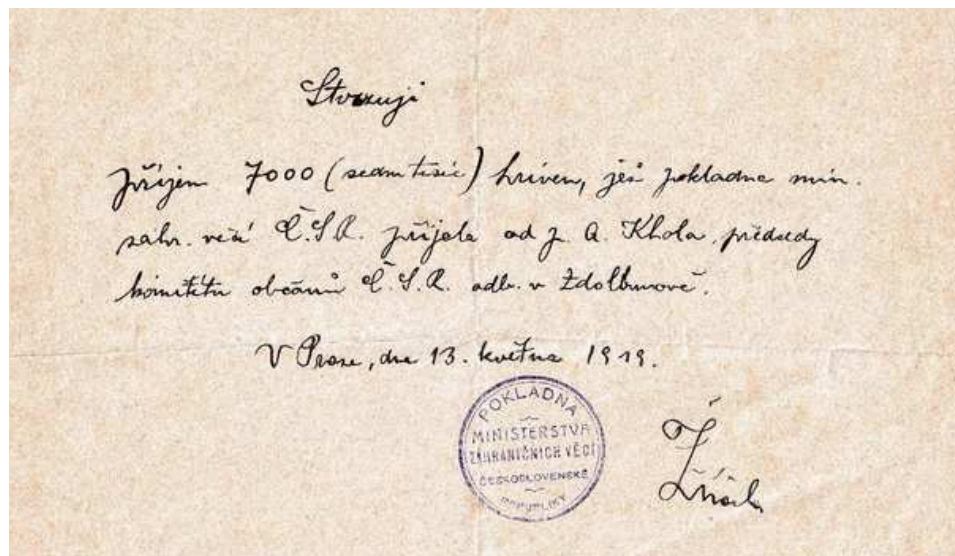 Stvrzuji
příjem 7000 (sedm tisíc) hřiven, jež pokladna min.
zahr. věcí Č.S.R. přijala od p. A. Khola, předsedy
komitétu občanů Č.S.R. odb. v Zdolbunově.
V Praze, dne 13. května 1919.
POKLADNA
MINISTERSTVA
ZAHRANIČNÍCH VĚCÍ
ČESKOSLOVENSKÉ
REPUBLIKY